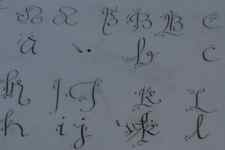 A A B B B C
a b c
h I J K L
h i j k l